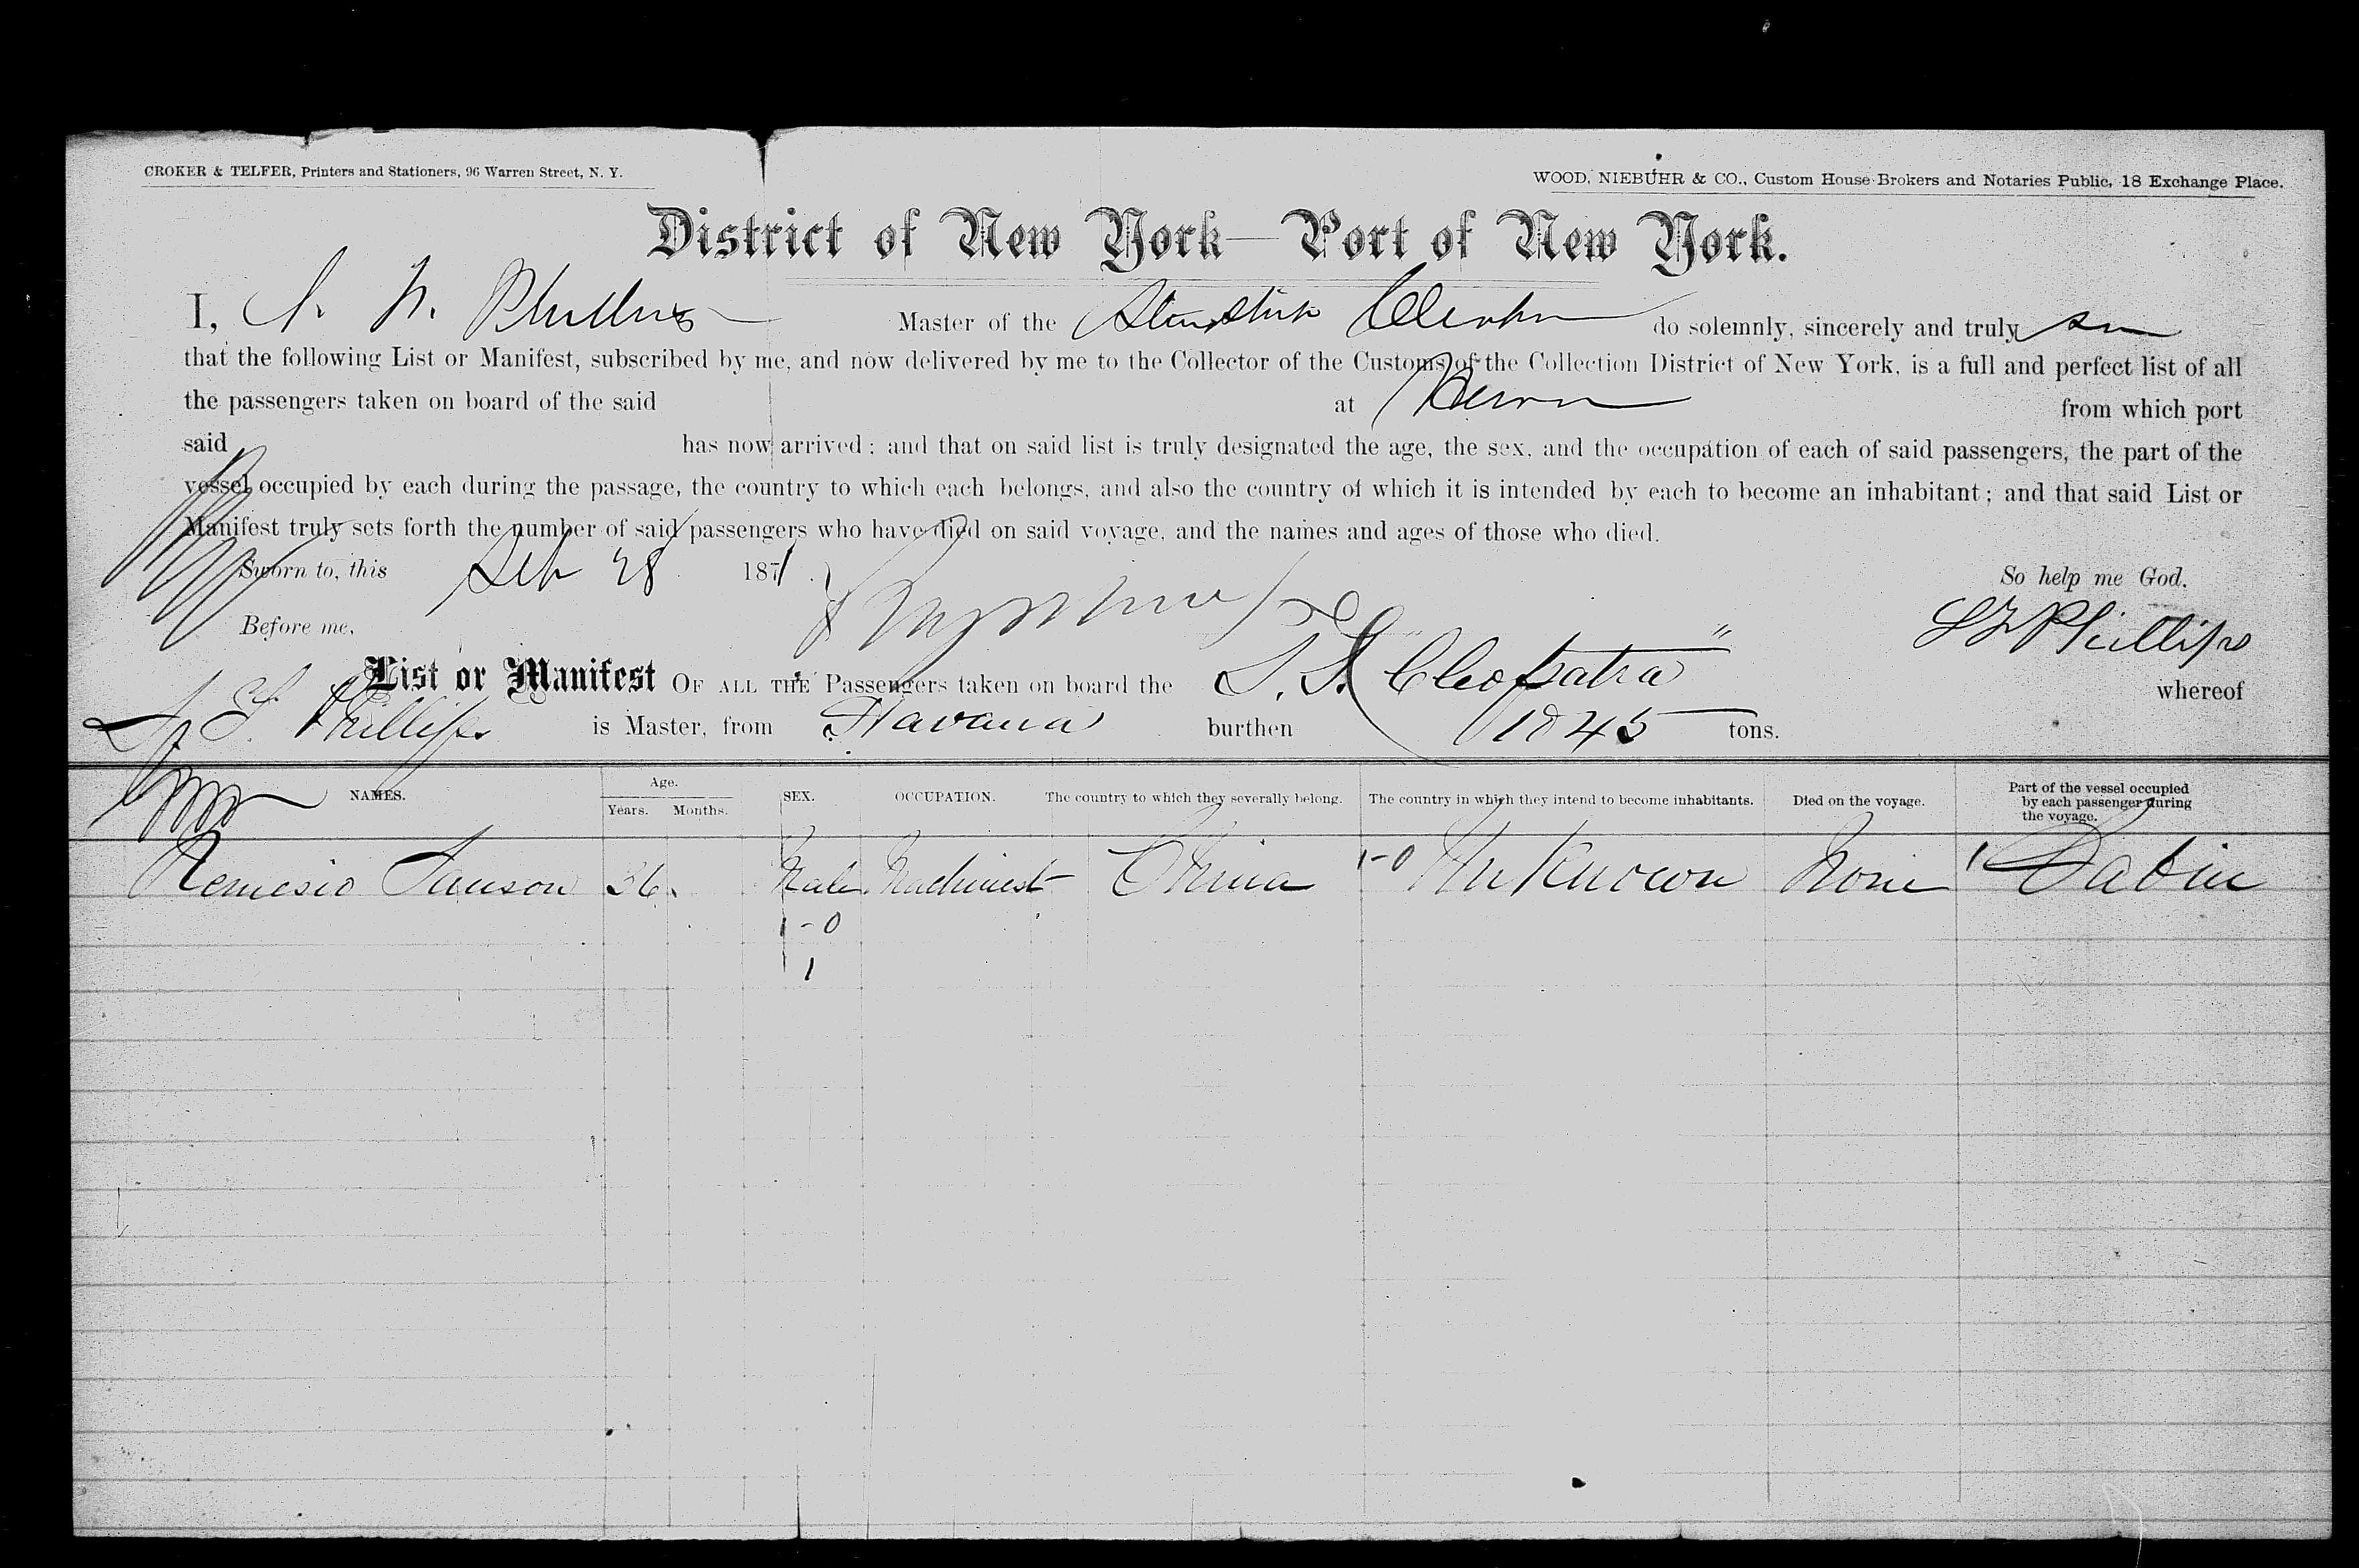 CROKER & TELFER, Printers and Stationers, 96 Warren Street, N. Y.
WOOD, NIEBUHR & CO., Custom House Brokers and Notaries Public, 18 Exchange Place.
District of New York—Port of New York.
I, Phillips Master of the Steamship do solemnly, sincerely and truly
that the following List or Manifest, subscribed by me, and now delivered by me to the Collector of the Customs of the Collection District of New York, is a full and perfect list of all
the passengers taken on board of the said at from which port
said has now arrived: and that on said list is truly designated the age, the sex, and the occupation of each of said passengers, the part of the
vessel occupied by each during the passage, the country to which each belongs, and also the country of which it is intended by each to become an inhabitant; and that said List or
Manifest truly sets forth the number of said passengers who have died on said voyage, and the names and ages of those who died.
Sworn to, this 28 1871 So help me God.
Before me, Phillips
List or Manifest OF ALL THE Passengers taken on board the S. S. "Cleopatra" whereof
Phillips is Master, from Havana burthen 1045 tons.
NAMES. Age. Years. Months. SEX. OCCUPATION. The country to which they severally belong. The country in which they intend to become inhabitants. Died on the voyage. Part of the vessel occupied by each passenger during the voyage.
Nemesio 36 Male Machinist China 1-0 Unknown None 1 Cabin
1-0
1